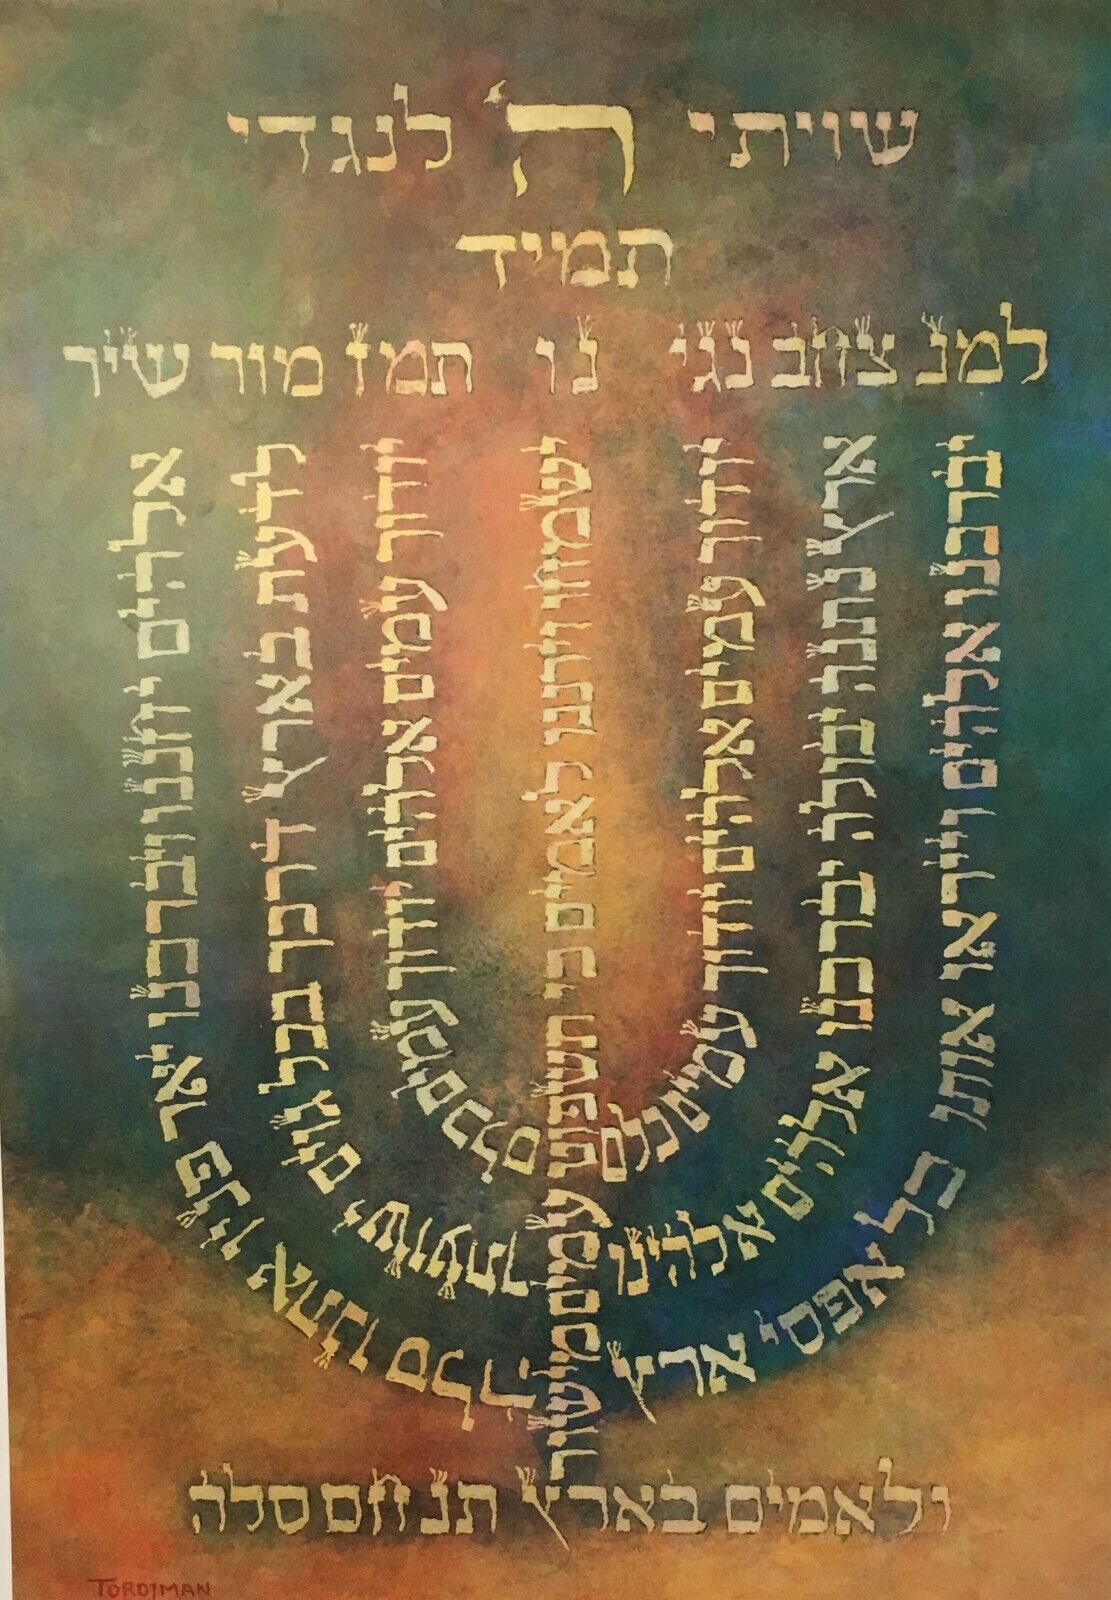 שויתי ה' לנגדי
תמיד
למנ צחב נגי נו תמז מור שיר
אלהים יחננו ויברכנו יאר פניו אתנו סלה
לדעת בארץ דרכך בכל גוים ישועתך
יודוך עמים אלהים יודוך עמים כלם
ישמחו וירננו לאמים כי תשפוט עמים מישור
יודוך עמים אלהים יודוך עמים כלם
ארץ נתנה יבולה יברכנו אלהים אלהינו
יברכנו אלהים וייראו אותו כל אפסי ארץ
ולאמים בארץ תנ חם סלה
TORDJMAN